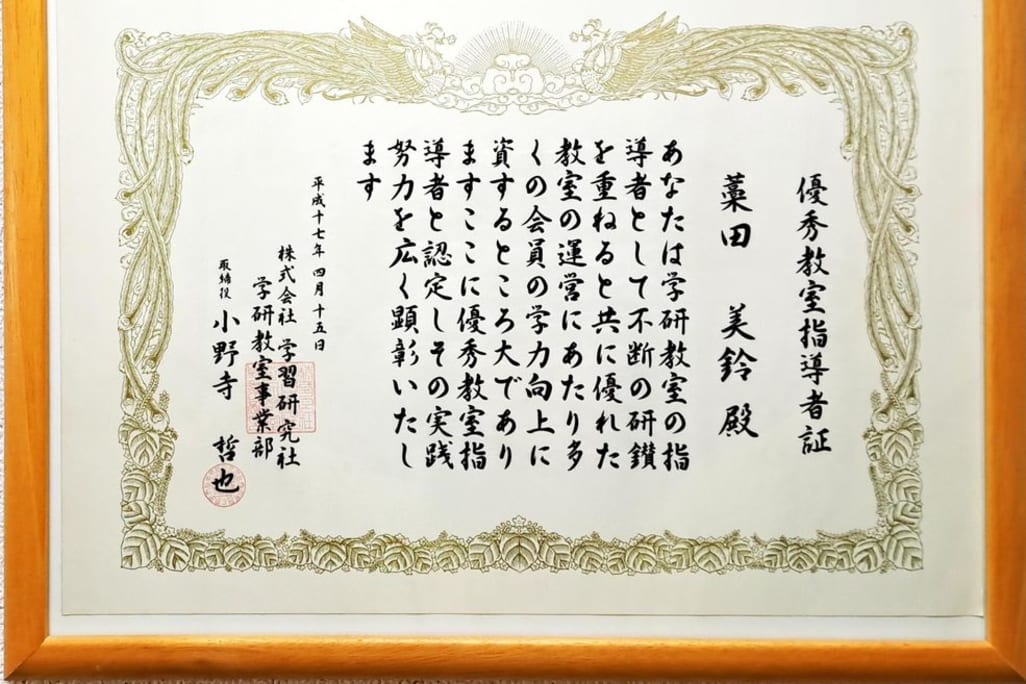 優秀教室指導者証
藁田 美鈴 殿
あなたは学研教室の指
導者として不断の研鑚
を重ねると共に優れた
教室の運営にあたり多
くの会員の学力向上に
資するところ大であり
ますここに優秀教室指
導者と認定しその実践
努力を広く顕彰いたし
ます
平成十七年四月十五日
株式会社 学習研究社
学研教室事業部
取締役 小野寺 哲也